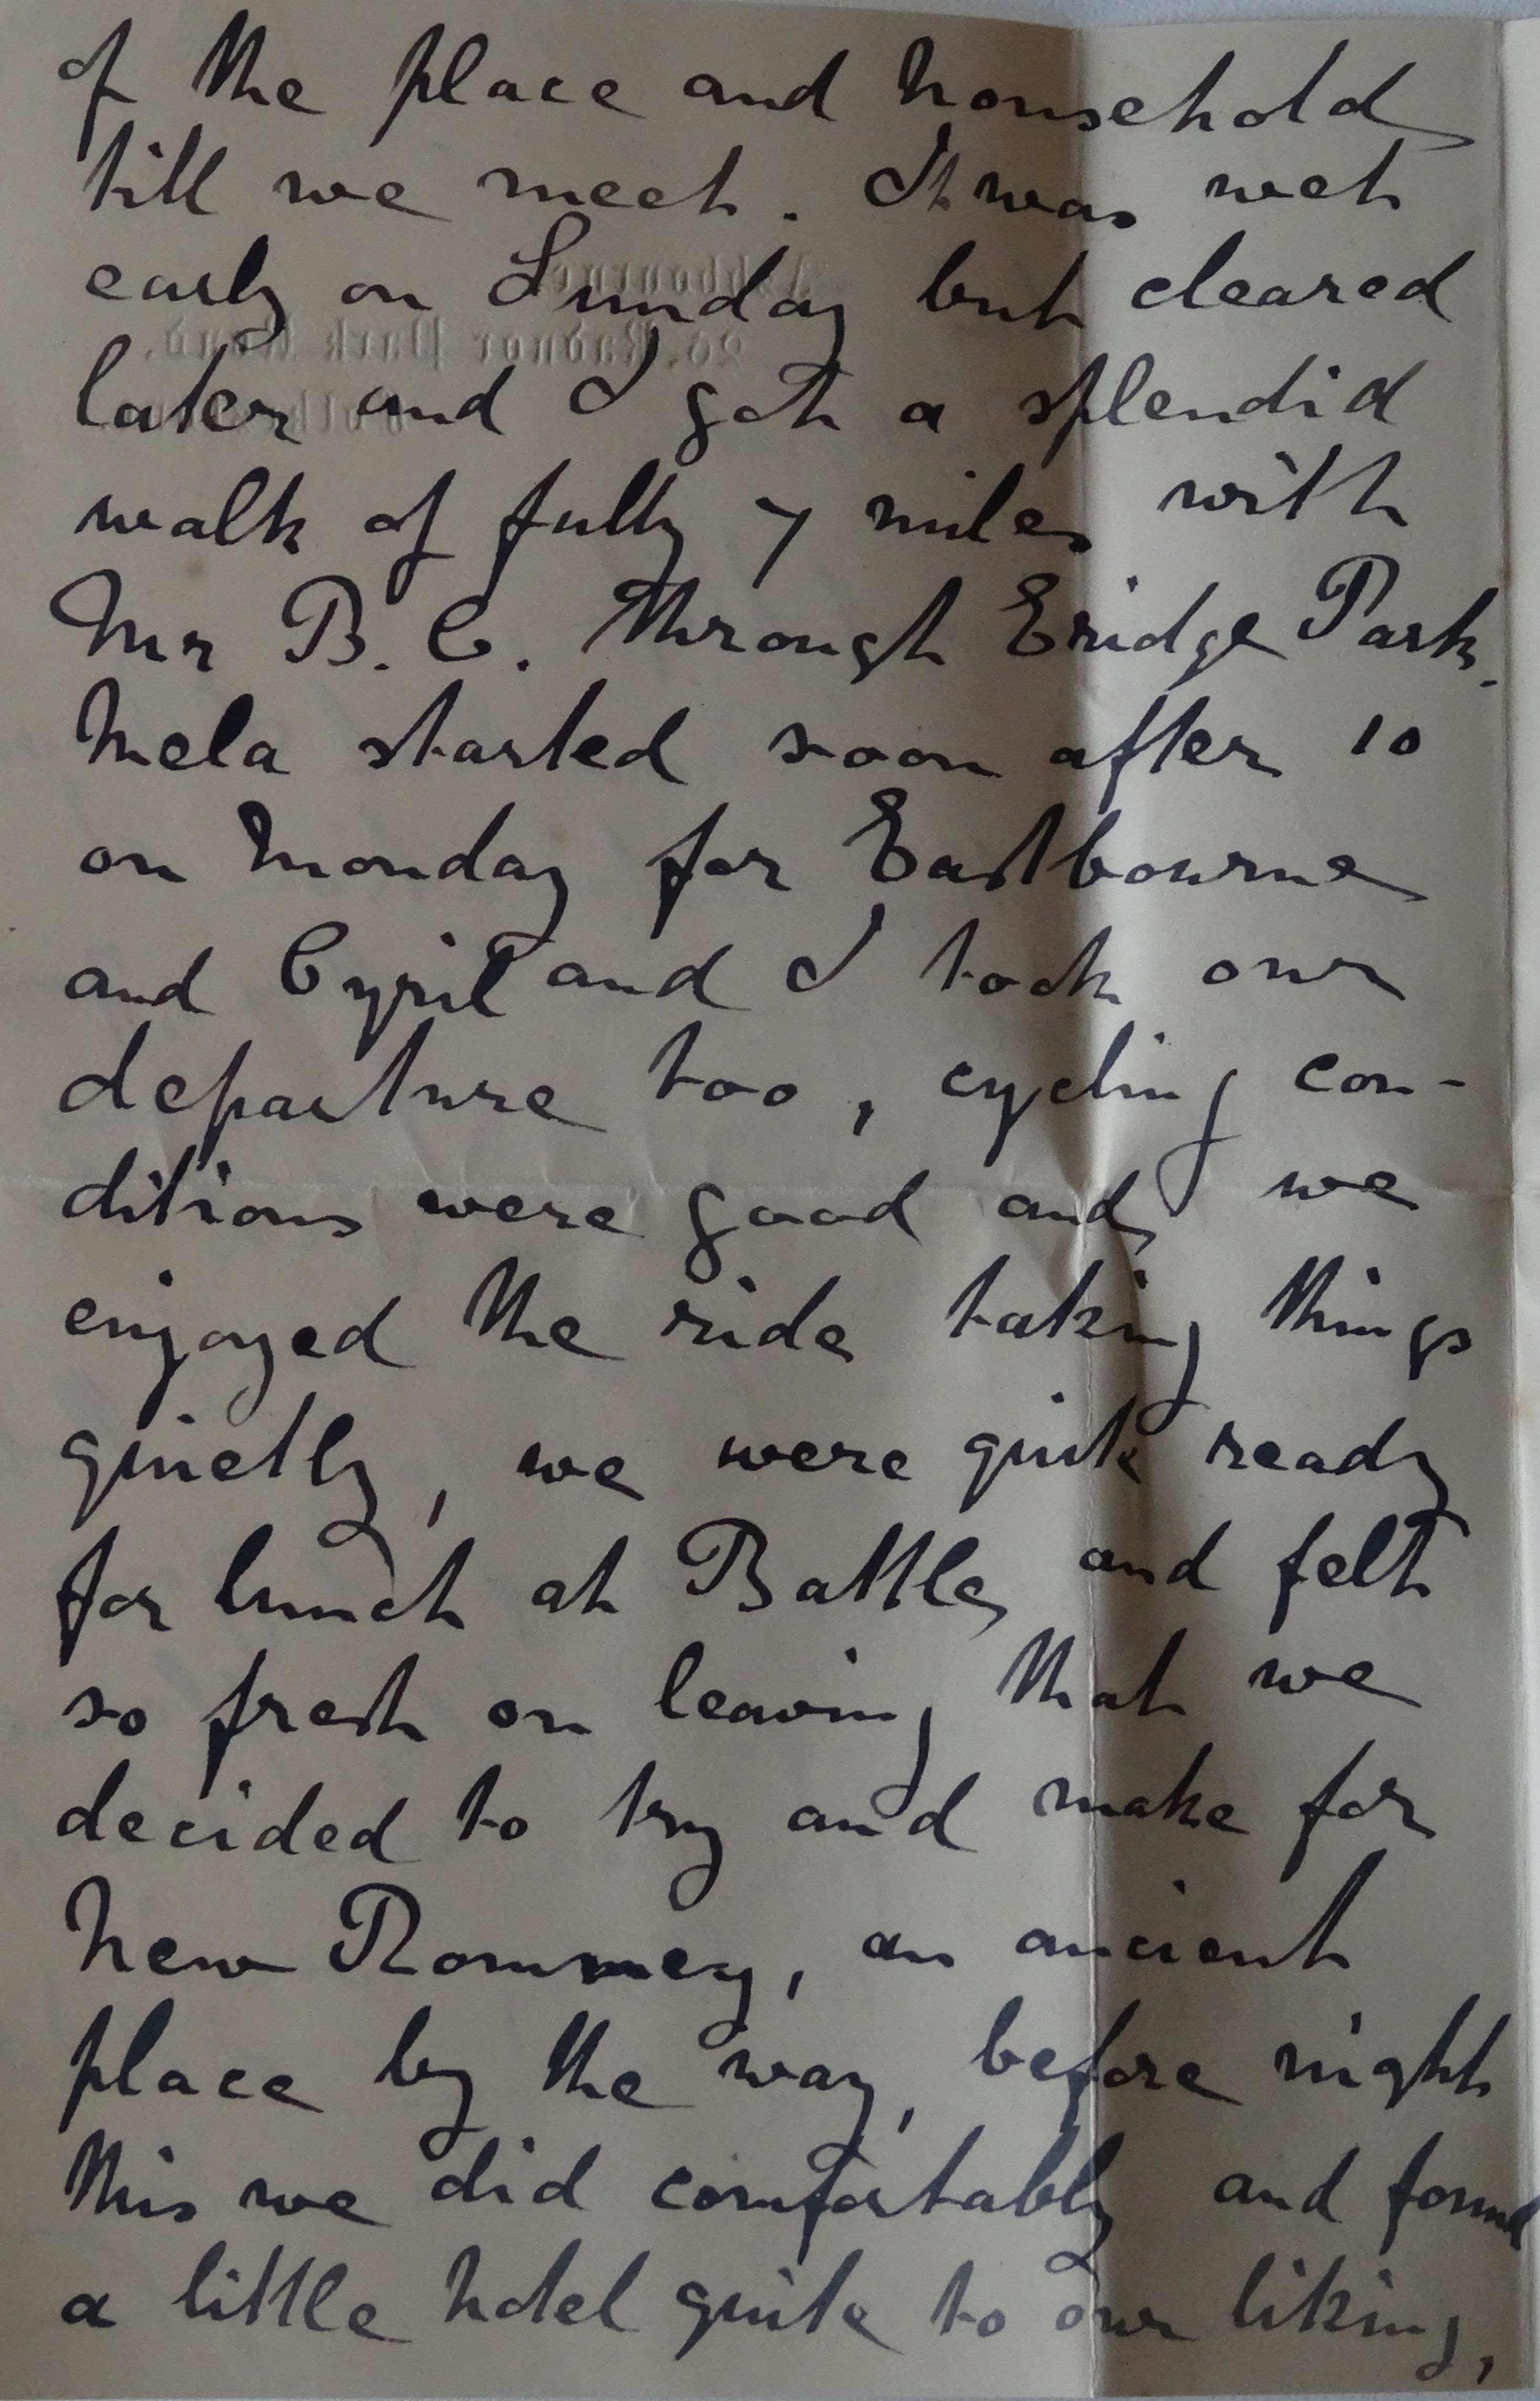 of the place and household
till we meet. It was wet
early on Sunday but cleared
later and I got a splendid
walk of fully 7 miles with
Mr B. C. through Eridge Park.
Mela started soon after 10
on Monday for Eastbourne
and Cyril and I took our
departure too, cycling con-
ditions were good and we
enjoyed the ride taking things
quietly, we were quite ready
for lunch at Battle, and felt
so fresh on leaving that we
decided to try and make for
New Rommey, an ancient
place by the way, before night
this we did comfortably and found
a little hotel quite to our liking,
26, Radnor Park Road,